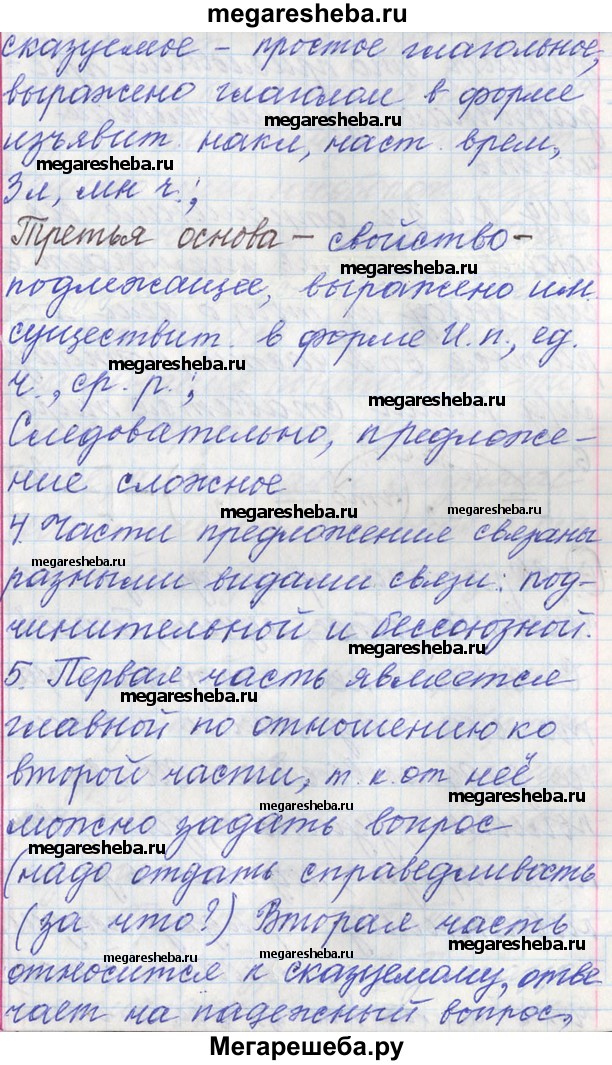 megaresheba.ru
сказуемое – простое глагольное,
выражено глаголом в форме
megaresheba.ru
изъявит. накл, наст. врем,
megaresheba.ru
3л, мн ч.;
Третья основа – свойство –
megaresheba.ru
подлежащее, выражено им.
существит. в форме И.п., ед.
megaresheba.ru
ч., ср. р.;
megaresheba.ru
Следовательно, предложе-
ние сложное
4. Части предложения связаны
megaresheba.ru
megaresheba.ru
разными видами связи: под-
чинительной и бессоюзной.
megaresheba.ru
5. Первая часть является
megaresheba.ru
главной по отношению ко
второй части, т. к. от неё
megaresheba.ru
megaresheba.ru
можно задать вопрос
megaresheba.ru
(надо отдать справедливость
(за что?) Вторая часть
megaresheba.ru
megaresheba.ru
megaresheba.ru
относится к сказуемому, отве
чает на падежный вопрос,
Мегарешеба.ру